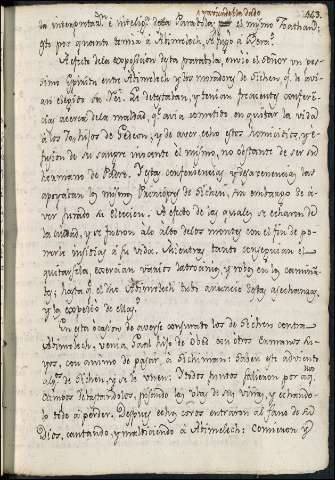 463.
la interpretaz.n è intelig.a desta Parabola; el mismo Joathan;
q.e por quanto temia à Abimelech, se fugo a Bera.
A efecto dela exposicion desta parabola, envio el Señor un pes-
simo espiritu entre Abimelech y los moradores de Sichen q.e le avi-
an elegido en Rei. Le detestaban, y tenian frecuentes conferen-
cias acerca dela maldad, q.e avia cometido en quitar la vida
à los 70 hijos de Gedeon, y de aver echo estos homicidios, y e-
fusion de su sangre inocente el mismo, no obstante de ser su
hermano de Padre. Y estas conferencias y desavenencias las
apoyaban los mismos Principes de Sichen, sin embargo de a-
ver jurado su eleccion. A efecto de las quales se echaron de
la ciudad, y se fueron alo alto delos montes con el fin de po-
nerle insidias à su vida. Mientras tanto conseguian el
quitarsela, exercian varios latrocinios, y robos en los camin.s
; hasta q.e el dho Abimelech tubo anuncio destas asechanzas,
y la exposicion de ellas.
En esta ocasion de averse conjurado los de Sichen contra
Abimelech, venia Gaal hijo de Obed con otros hermanos su-
yos, con animo de pasar à Sichiman: Saben este adviento
alg.s de Sichen, y se le unen: Y todos juntos salieron por aq.llos
campos detastandolos, pisando las ubas de sus viñas, y echando-
lo todo à perder. Despues echos coros entraron al fano de su
Dios, cantando, y maldiciendo à Abimelech: Comieron y